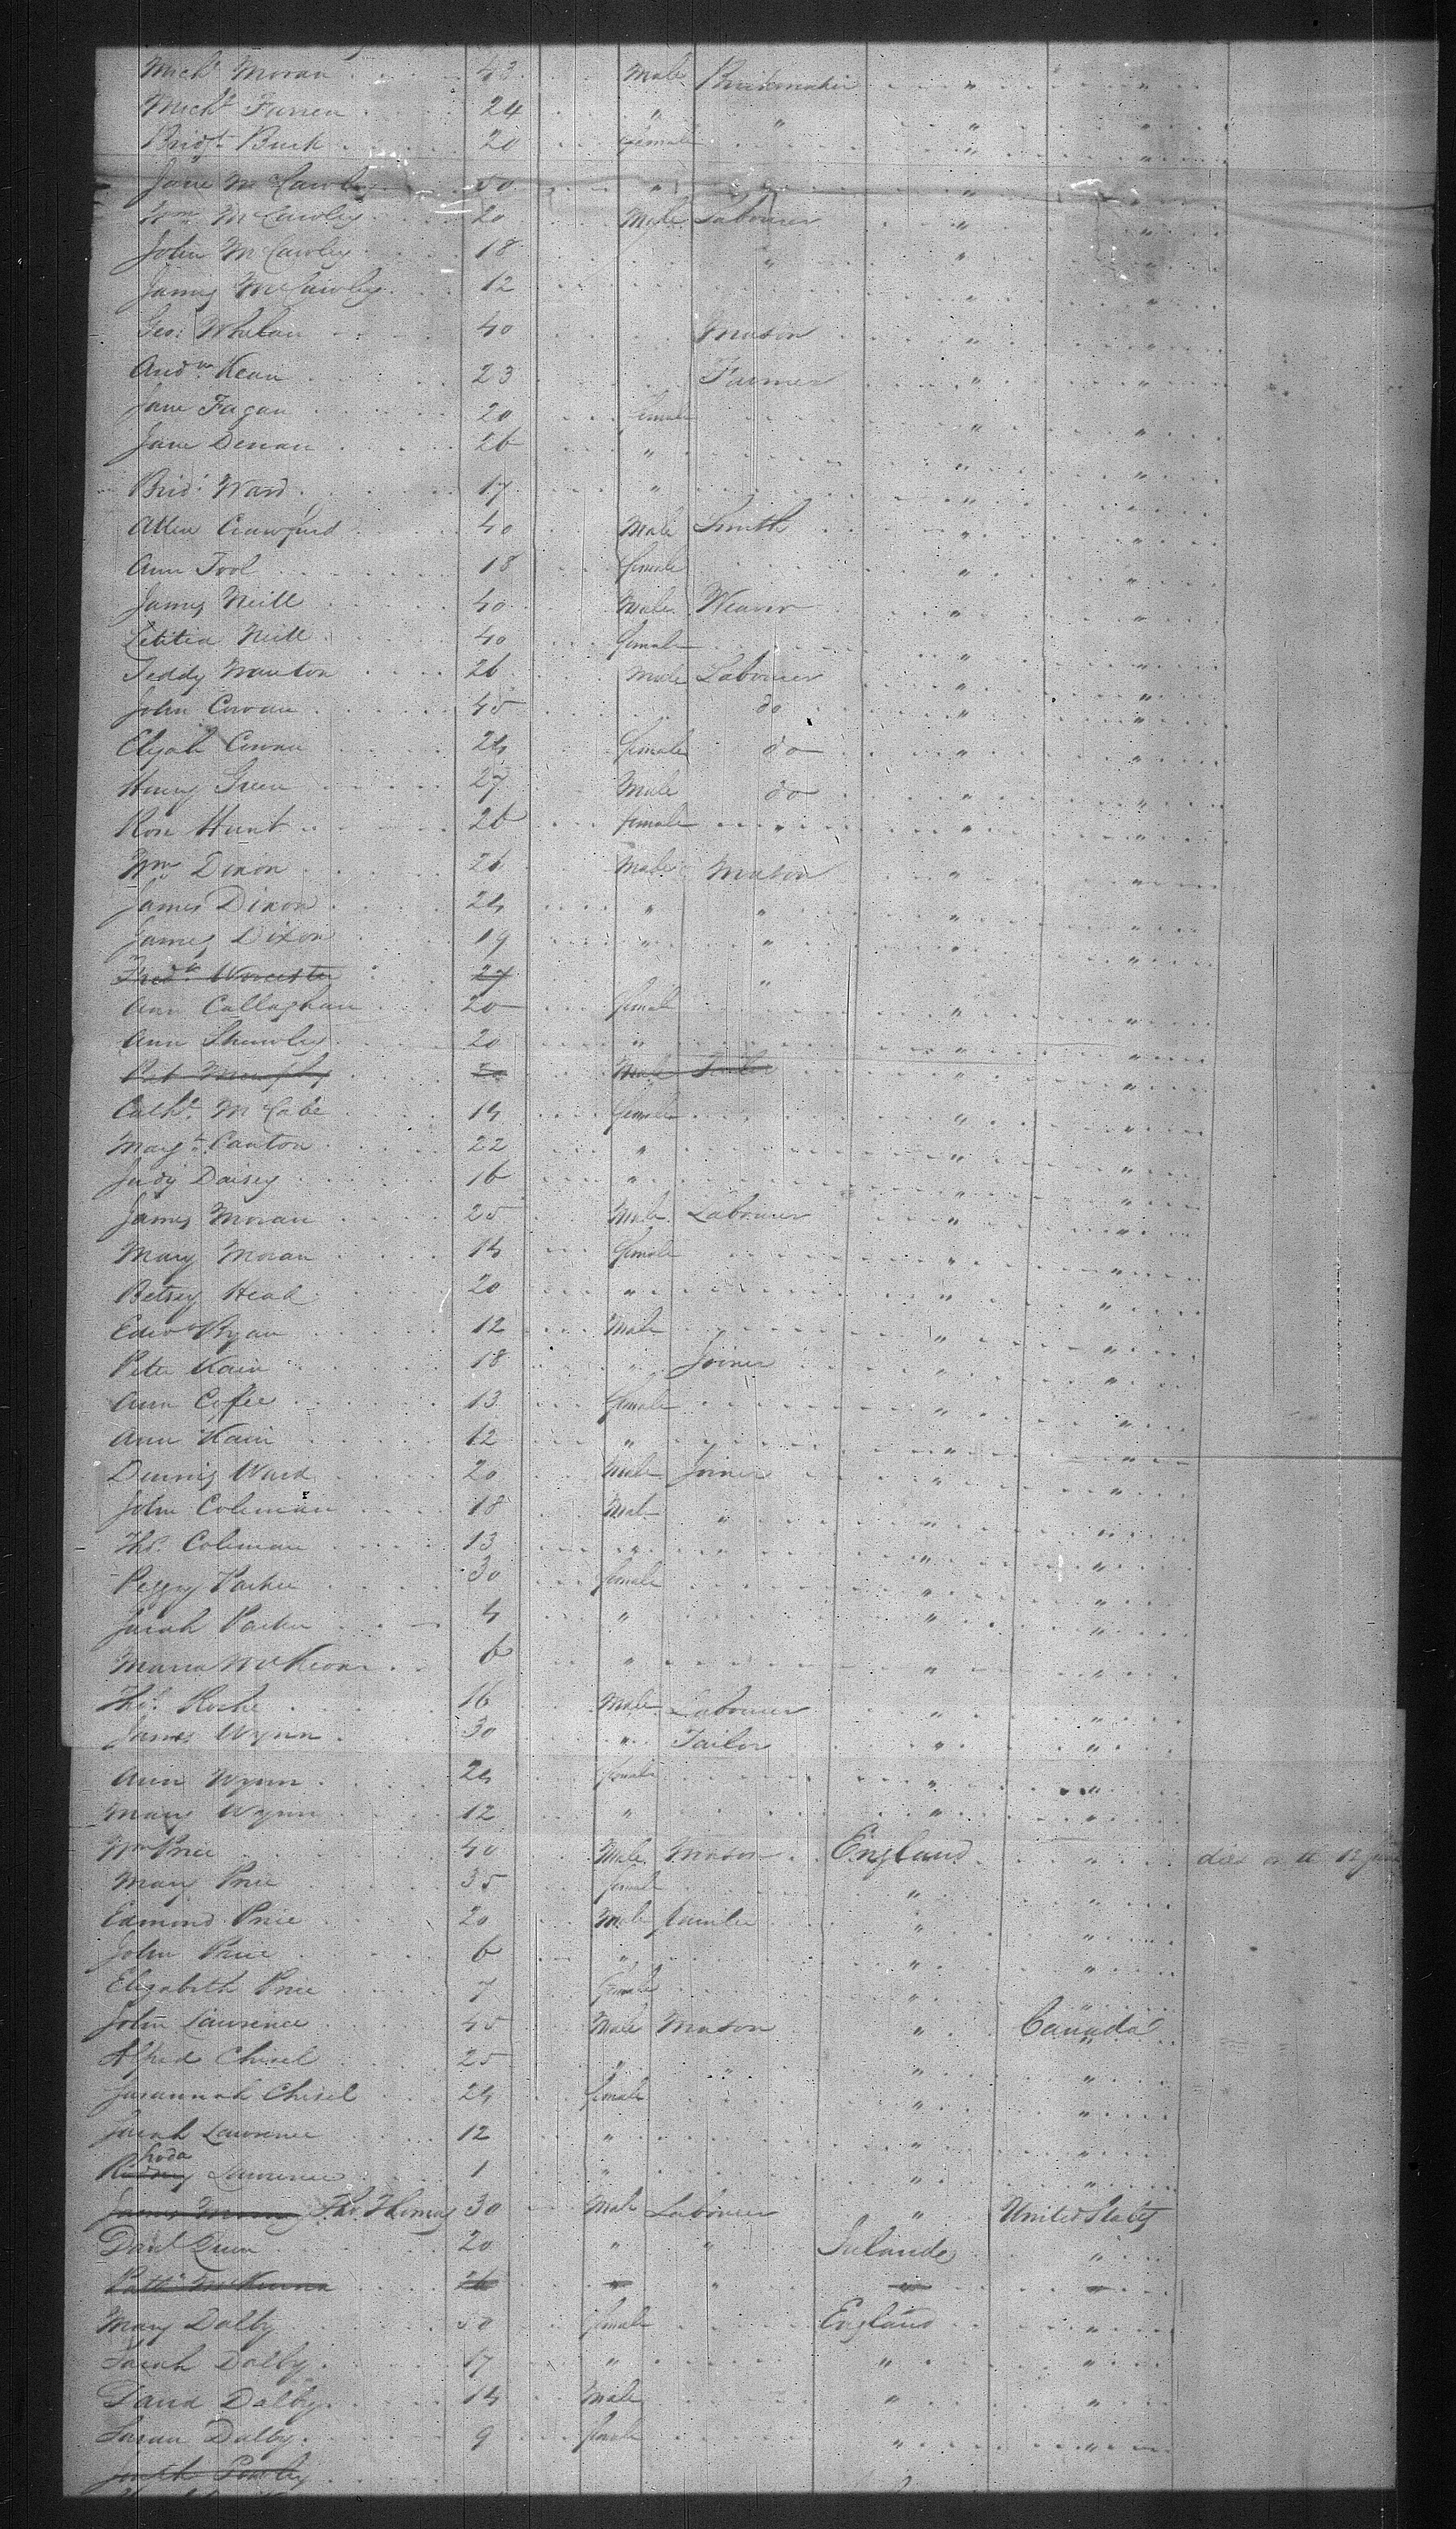 Mich.l Moran 43 Male Brickmaker " "
Mich.l Farren 24 " " " "
Bridg.t Burk 20 female " "
Jane McCawley 50 " " "
Wm McCawley 20 Male Labourer " "
John McCawley 18 " " "
James McCawley 12 " "
Geo: Whelan 40 Mason " "
Andw. Kean 23 Farmer " "
Jane Fagan 20 female " "
Jane Denan 26 " " "
Brid.t Ward 17 " " "
Allen Crawford 40 Male Smith " "
Ann Tool 18 female " "
James Neill 40 Male Weaver " "
Letitia Neill 40 female " "
Teddy Wauton 26 Male Labourer " "
John Cowan 45 do " "
Elijah Cowan 24 female do " "
Henry Green 27 Male do " "
Rose Hunt 26 female " " "
Wm Dixon 26 Male Mason " "
James Dixon 24 " " " "
James Dixon 19 " " " "
Fredk Worcester 27 "
Ann Callaghan 20 female " "
Ann Shewley 20 " " "
Pat Murphy 50 Male Tailor " "
Cath.e McCabe 14 female " "
Marg.t Canton 22 " " "
Judy Daisey 16 " " "
James Moran 25 Male Labourer " "
Mary Moran 14 female " "
Betsey Head 20 " " "
Edwd Ryan 12 Male " "
Peter Kain 18 " Joiner " "
Ann Coffee 13 female " "
Ann Kain 12 " " "
Dennis Ward 20 Male Joiner " "
John Coleman 18 Male " " "
Thos. Coleman 13 " " " "
Peggy Parker 30 female " "
Sarah Parker 4 " " "
Maria McKeon 6 " " "
Thos. Roche 16 Male Labourer " "
James Wynn 30 " Tailor " "
Ann Wynn 24 female " "
Mary Wynn 12 " " "
Wm Price 40 Male Mason England " died on the 12 June
Mary Price 35 female " "
Edmond Price 20 Male " "
John Price 6 " " "
Elizabeth Price 7 female " "
John Lawrence 45 Male Mason " Canada
Alfred Chisel 25 " " " "
Susannah Chisel 24 female " "
Sarah Lawrence 12 " " "
hoda
Lawrence 1 " " "
James Thos. Thomas 30 Male Labourer " United States
Danl Quin 20 " " Ireland "
Patk McKenna 26 " " " "
Mary Dalby 50 female England "
Sarah Dalby 17 " " "
David Dalby 14 Male " "
Susan Dalby 9 female " "
Joseph